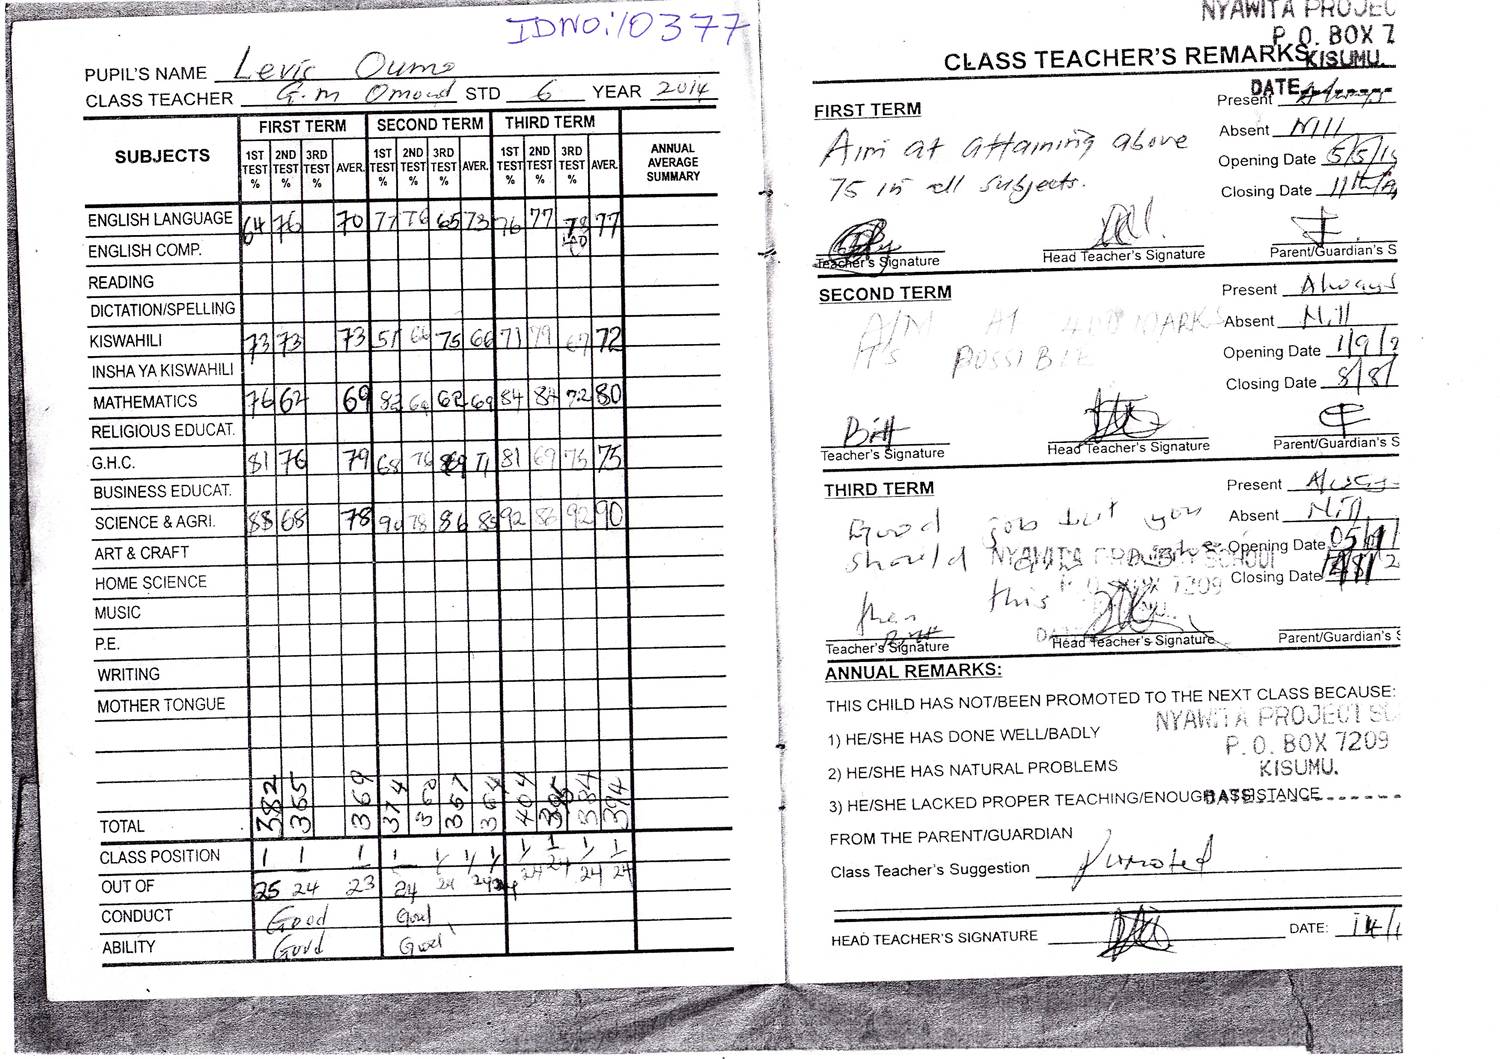 IDNO:10377
PUPIL'S NAME Levis Oumo
CLASS TEACHER G.m Omondi STD 6 YEAR 2014
SUBJECTS FIRST TERM SECOND TERM THIRD TERM ANNUAL AVERAGE SUMMARY
1ST TEST % 2ND TEST % 3RD TEST % AVER. 1ST TEST % 2ND TEST % 3RD TEST % AVER. 1ST TEST % 2ND TEST % 3RD TEST % AVER.
ENGLISH LANGUAGE 64 76 70 77 76 65 73 76 77 78 77
ENGLISH COMP. 40
READING
DICTATION/SPELLING
KISWAHILI 73 73 73 51 66 75 66 71 79 67 72
INSHA YA KISWAHILI
MATHEMATICS 76 62 69 82 62 69 84 84 72 80
RELIGIOUS EDUCAT.
G.H.C. 81 76 79 68 76 69 71 81 69 75 75
BUSINESS EDUCAT.
SCIENCE & AGRI. 88 68 78 90 78 86 85 92 86 92 90
ART & CRAFT
HOME SCIENCE
MUSIC
P.E.
WRITING
MOTHER TONGUE
TOTAL 382 365 369 374 360 357 364 404 395 384 394
CLASS POSITION 1 1 1 1 1 1 1 1 1 1
OUT OF 25 24 23 24 24 24 24 24 24 24
CONDUCT Good Good
ABILITY Good Good
NYAWITA PROJEC
P. O. BOX 7
KISUMU.
CLASS TEACHER'S REMARKS
DATE
FIRST TERM
Present Always
Aim at attaining above
75 in all subjects.
Absent Nill
Opening Date 5/5/1
Closing Date 11th/A
Teacher's Signature Head Teacher's Signature Parent/Guardian's S
SECOND TERM
Present Always
AIM AT 400 MARKS
AS POSSIBLE
Absent Nill
Opening Date 1/9/2
Closing Date 8/8/
Teacher's Signature Head Teacher's Signature Parent/Guardian's S
THIRD TERM
Present Always
Good job but you
should
than this
Absent Nill
Opening Date 05/
Closing Date
NYAWITA PRIMARY SCHOOL
P. O. BOX 7209
KISUMU.
Teacher's Signature Head Teacher's Signature Parent/Guardian's S
ANNUAL REMARKS:
THIS CHILD HAS NOT/BEEN PROMOTED TO THE NEXT CLASS BECAUSE:
NYAWITA PROJECT SC
P. O. BOX 7209
KISUMU.
DATE
1) HE/SHE HAS DONE WELL/BADLY
2) HE/SHE HAS NATURAL PROBLEMS
3) HE/SHE LACKED PROPER TEACHING/ENOUGH ASSISTANCE
FROM THE PARENT/GUARDIAN
Class Teacher's Suggestion Pumoted
HEAD TEACHER'S SIGNATURE DATE: 14/1